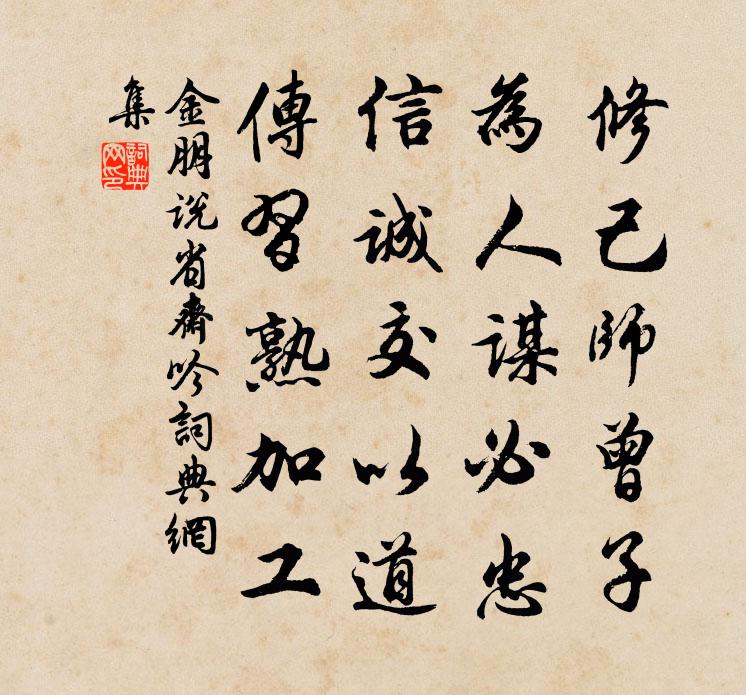 修己師曾子
為人謀必忠
信誠交以道
傳習熟加工
金朋说省齋吟詞典網
集
詞典
网印